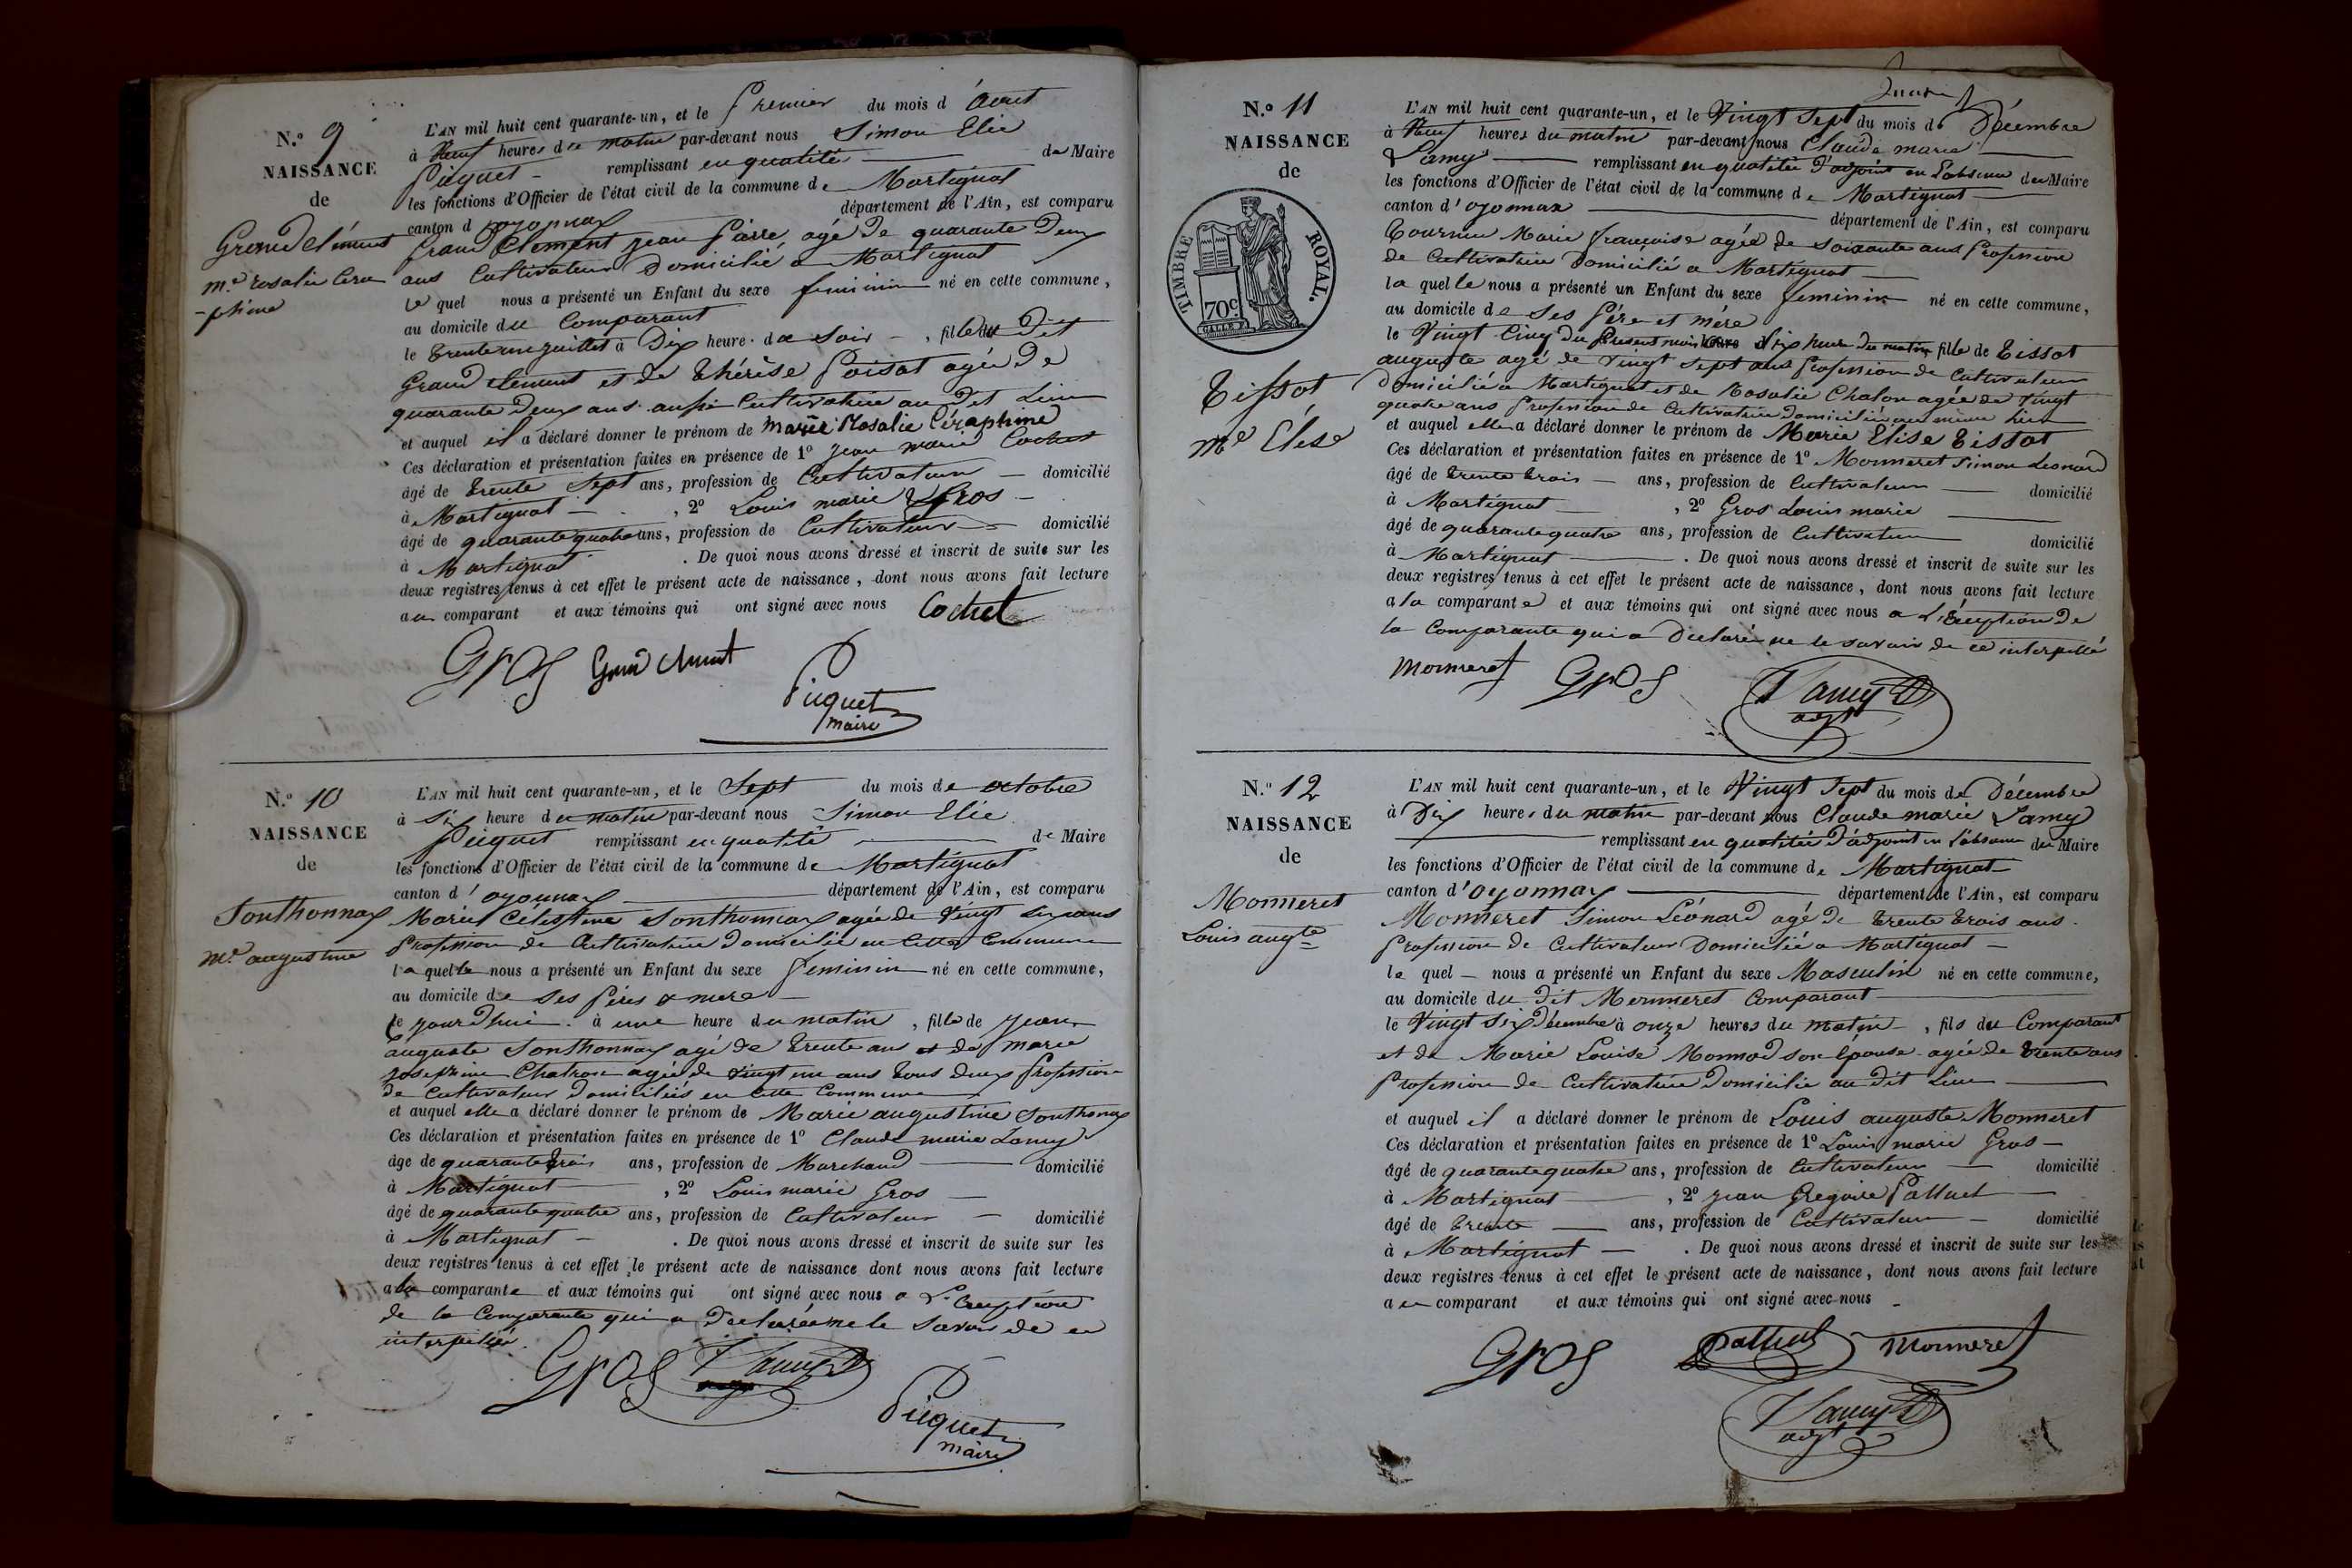 N.º 9
NAISSANCE
de
Grand Clément
m.e rosalie Cera
-phine
L'AN mil huit cent quarante-un, et le Premier du mois d'Aout
à Neuf heures du matin par-devant nous Simon Elie
Puquet - remplissant en qualité de Maire
les fonctions d'Officier de l'état civil de la commune de Martignat
canton d oyonnax département de l'Ain, est comparu
Grand Clement jean Pierre, agé de quarante Deux
ans Cultivateur Domicilié a Martignat
le quel nous a présenté un Enfant du sexe feminin né en cette commune,
au domicile du Comparant
le trente un juillet à Dix heure. du soir - , fille du Dit
Grand Clement et de Thérèse Poisat agée de
quarante Deux ans aussi Cultivatrice au Dit Lieu
et auquel il a déclaré donner le prénom de Marie Rosalie Céraphine
Ces déclaration et présentation faites en présence de 1º jean marie Cochet
âgé de trente Sept ans, profession de Cultivateur - domicilié
à Martignat - , 2º Louis marie Gros -
âgé de quarante quatre ans, profession de Cultivateur - domicilié
à Martignat . De quoi nous avons dressé et inscrit de suite sur les
deux registres tenus à cet effet le présent acte de naissance, dont nous avons fait lecture
au comparant et aux témoins qui ont signé avec nous Cochet
Gros Grand Clément
Puquet
maire
N.º 10
NAISSANCE
de
Sonthonnax
m.e augustine
L'AN mil huit cent quarante-un, et le Sept du mois de octobre
à Six heure du matin par-devant nous Simon Elie
Puquet remplissant en qualité de Maire
les fonctions d'Officier de l'état civil de la commune de Martignat
canton d'oyonnax département de l'Ain, est comparu
Marie Celestine Sonthonnax agée de Vingt Six ans
Profession de Cultivatrice Domiciliée en Cette Commune
la quelle nous a présenté un Enfant du sexe feminin né en cette commune,
au domicile de ses Péres & mere -
le jourd'hui. à une heure du matin , fille de jean
auguste Sonthonnax agé de trente ans et de marie
josephine Chatron agée de vingt un ans tous Deux Profession
de Cultivateur Domiciliés en Cette Commune
et auquel elle a déclaré donner le prénom de Marie augustine Sonthonax
Ces déclaration et présentation faites en présence de 1º Claude marie Lamy
âge de quarante trois ans, profession de Marchand domicilié
à Martignat , 2º Louis marie Gros -
âgé de quarante quatre ans, profession de Cultivateur - domicilié
à Martignat - . De quoi nous avons dressé et inscrit de suite sur les
deux registres tenus à cet effet le présent acte de naissance dont nous avons fait lecture
a la comparante et aux témoins qui ont signé avec nous a L'Exception
de la Comparante qui a Declarée ne le Savoir de ce
interpellée.
Gros Lamy
Puquet
maire
N.º 11
NAISSANCE
de
TIMBRE ROYAL.
70c.
Tissot
m.e Elise
L'AN mil huit cent quarante-un, et le Vingt Sept du mois de Décembre
à Neuf heures du matin par-devant nous Claude marie
Lamy remplissant en qualitée d'adjoint en L'absence du Maire
les fonctions d'Officier de l'état civil de la commune de Martignat
canton d'oyonnax département de l'Ain, est comparu
Marie françoise agée de Soixante ans Profession
de Cultivatrice Domicilié a Martignat
la quelle nous a présenté un Enfant du sexe feminin né en cette commune,
au domicile de ses Pére et mére
le Vingt Cinq du Present mois dix heure du matin fille de Tissot
auguste agé de Vingt Sept ans Profession de Cultivateur
Domicilié a Martignat et de Rosalie Chalon agée de Vingt
quatre ans Profession de Cultivatrice Domicilié au même Lieu
et auquel elle a déclaré donner le prénom de Marie Elise Tissot
Ces déclaration et présentation faites en présence de 1º Monneret Simon Leonard
âgé de trente trois - ans, profession de Cultivateur domicilié
à Martignat , 2º Gros Louis marie
âgé de quarante quatre ans, profession de Cultivateur domicilié
à Martignat . De quoi nous avons dressé et inscrit de suite sur les
deux registres tenus à cet effet le présent acte de naissance, dont nous avons fait lecture
a la comparante et aux témoins qui ont signé avec nous a L'Exception De
la Comparante qui a Declaré ne le Savoir de ce interpellé
Monneret Gros Lamy
adjt
N.º 12
NAISSANCE
de
Monneret
Louis augte
L'AN mil huit cent quarante-un, et le Vingt Sept du mois de Décembre
à Dix heures du matin par-devant nous Claude marie Lamy
remplissant en qualitée d'adjoint en L'absence du Maire
les fonctions d'Officier de l'état civil de la commune de Martignat
canton d'oyonnax département de l'Ain, est comparu
Monneret Simon Léonard agé de trente trois ans.
Profession de Cultivateur Domicilié a Martignat -
le quel - nous a présenté un Enfant du sexe Masculin né en cette commune,
au domicile du Dit Monneret Comparant
le Vingt Six Décembre à onze heures du matin - , fils du Comparant
et de Marie Louise Monnod son épouse agée de trente ans
Profession de Cultivatrice Domicilié au dit Lieu
et auquel il a déclaré donner le prénom de Louis auguste Monneret
Ces déclaration et présentation faites en présence de 1º Louis marie Gros -
âgé de quarante quatre ans, profession de Cultivateur domicilié
à Martignat , 2º jean Gregoire Palluel
âgé de trente ans, profession de Cultivateur - domicilié
à Martignat - . De quoi nous avons dressé et inscrit de suite sur les
deux registres tenus à cet effet le présent acte de naissance, dont nous avons fait lecture
au comparant et aux témoins qui ont signé avec nous -
Gros Palluel Monneret
Lamy
adjt